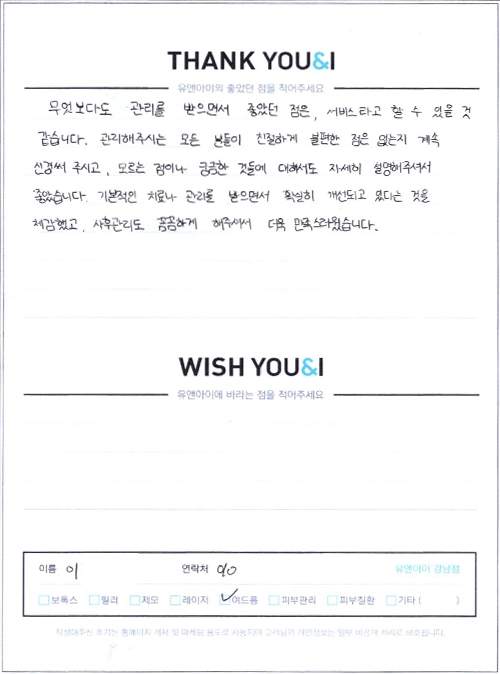 THANK YOU&I
유앤아이의 좋았던 점을 적어주세요
무엇보다도 관리를 받으면서 좋았던 점은, 서비스라고 할 수 있을 것
같습니다. 관리해주시는 모든 분들이 친절하게 불편한 점은 없는지 계속
신경써 주시고, 모르는 점이나 궁금한 것들에 대해서도 자세히 설명해주셔서
좋았습니다. 기본적인 치료나 관리를 받으면서 확실히 개선되고 있다는 것을
체감했고, 사후관리도 꼼꼼하게 해주셔서 더욱 만족스러웠습니다.
WISH YOU&I
유앤아이에 바라는 점을 적어주세요
이름 이 연락처 010 유앤아이 강남점
보톡스 필러 제모 레이저 여드름 피부관리 피부질환 기타 ( )
작성해주신 후기는 홈페이지 게재 및 마케팅 용도로 사용되며 고객님의 개인정보는 일부 비공개 처리로 보호됩니다.